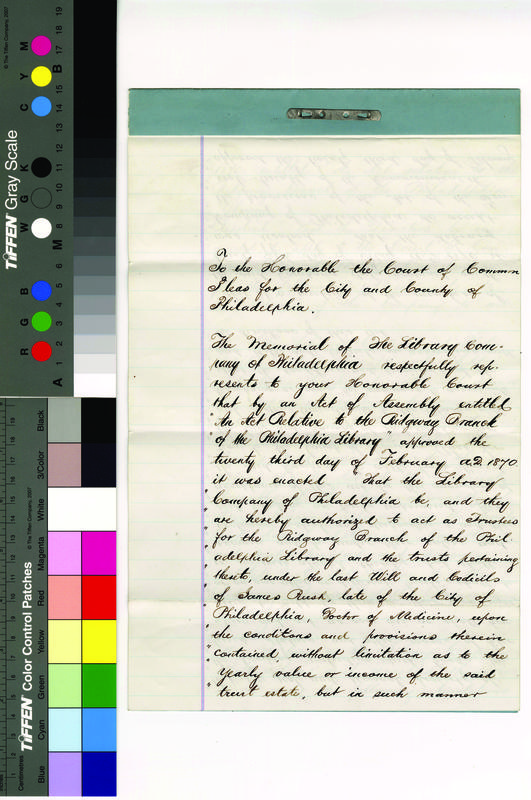 To the Honorable the Court of Common
Pleas for the City and County of
Philadelphia.
The Memorial of The Library Com-
pany of Philadelphia respectfully rep-
resents to your Honorable Court
that by an Act of Assembly entitled
"An Act Relative to the Ridgway Branch
of the Philadelphia Library" approved the
twenty third day of February A.D. 1870.
it was enacted "That the Library
"Company of Philadelphia be, and they
"are hereby authorized to act as Trustees
"for the Ridgway Branch of the Phil-
"adelphia Library and the trusts pertaining
"thereto, under the last Will and Codicils
"of James Rush, late of the City of
"Philadelphia, Doctor of Medicine, upon
"the conditions and provisions therein
"contained, without limitation as to the
"yearly value or income of the said
"trust estate, but in such manner
TIFFEN Gray Scale
© The Tiffen Company, 2007
R G B W G K C Y M
A 1 2 3 4 5 6 M 8 9 10 11 12 13 14 15 B 17 18 19
TIFFEN Color Control Patches
© The Tiffen Company, 2007
Centimetres
Blue
Cyan
Green
Yellow
Red
Magenta
White
3/Color
Black